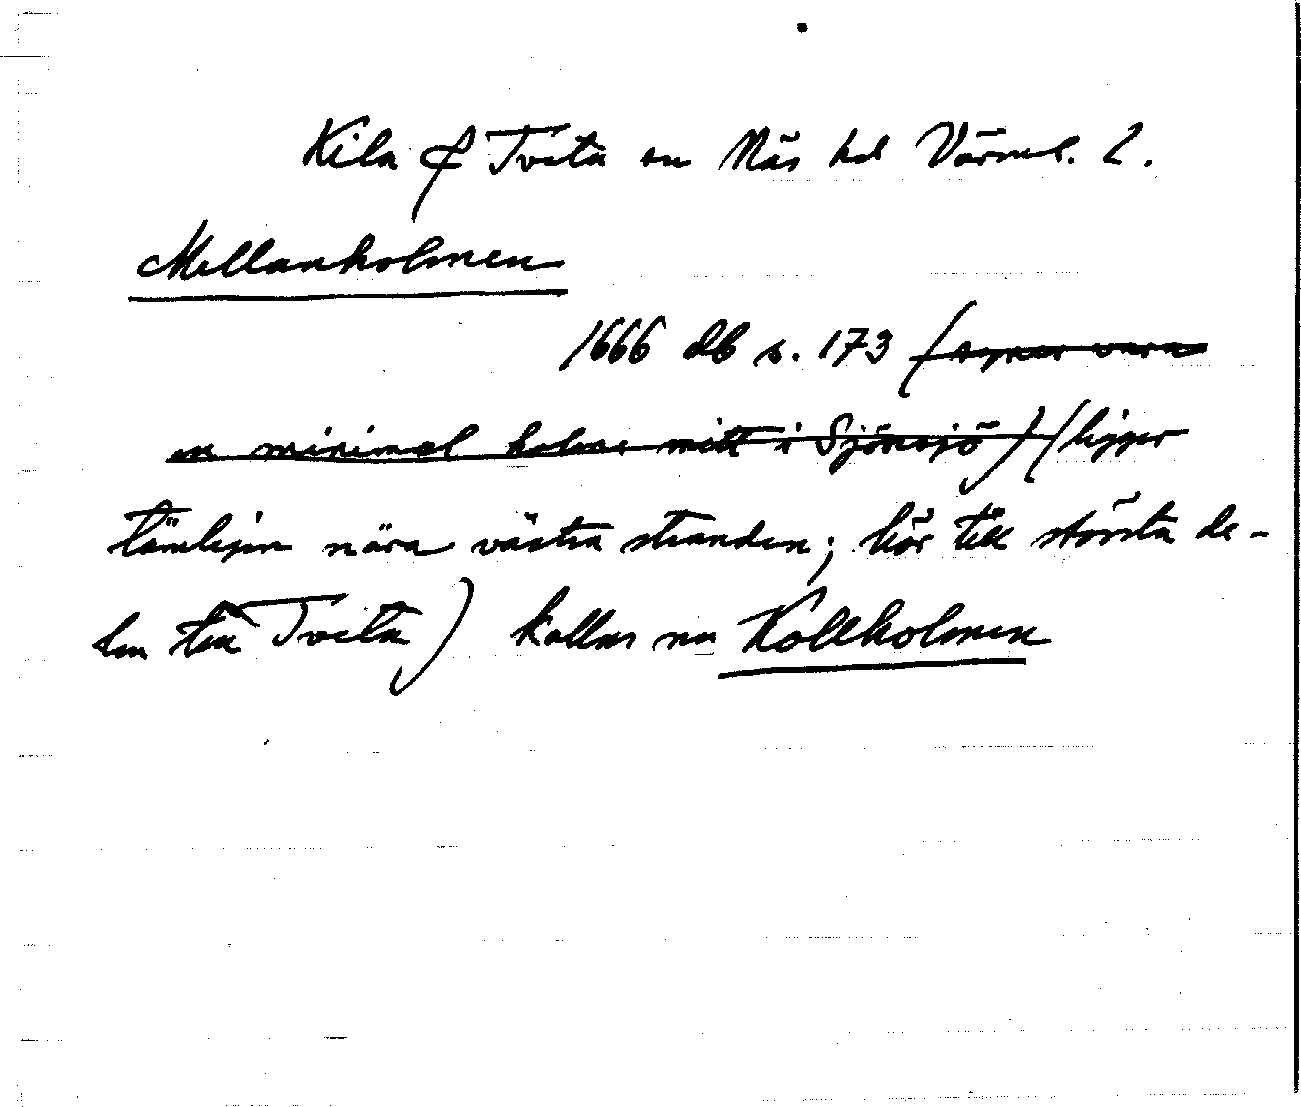 Kila & Tveta sn Näs hd Värml. l.
Mellanholmen
1666 db s. 173 (synes vara
en minimal holme mitt i Sjönsjö) (ligger
tämligen nära västra stranden; hör till största de-
len till Tveta) kallas nu Kollholmen